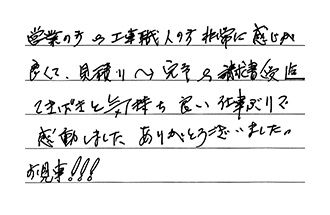 営業の方も工事職人の方非常に感じが
良くて、見積り〜完了の請求書受治
てきぱきと気持ち良い仕事ぶりで
感動しました ありがとうございました。
お見事!!!